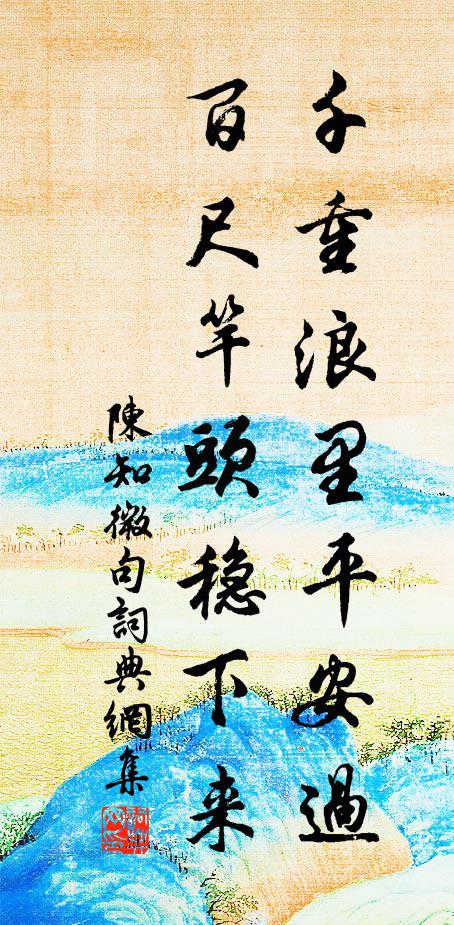 千重浪里平安過
百尺竿頭稳下来
陳知微句詞典網集